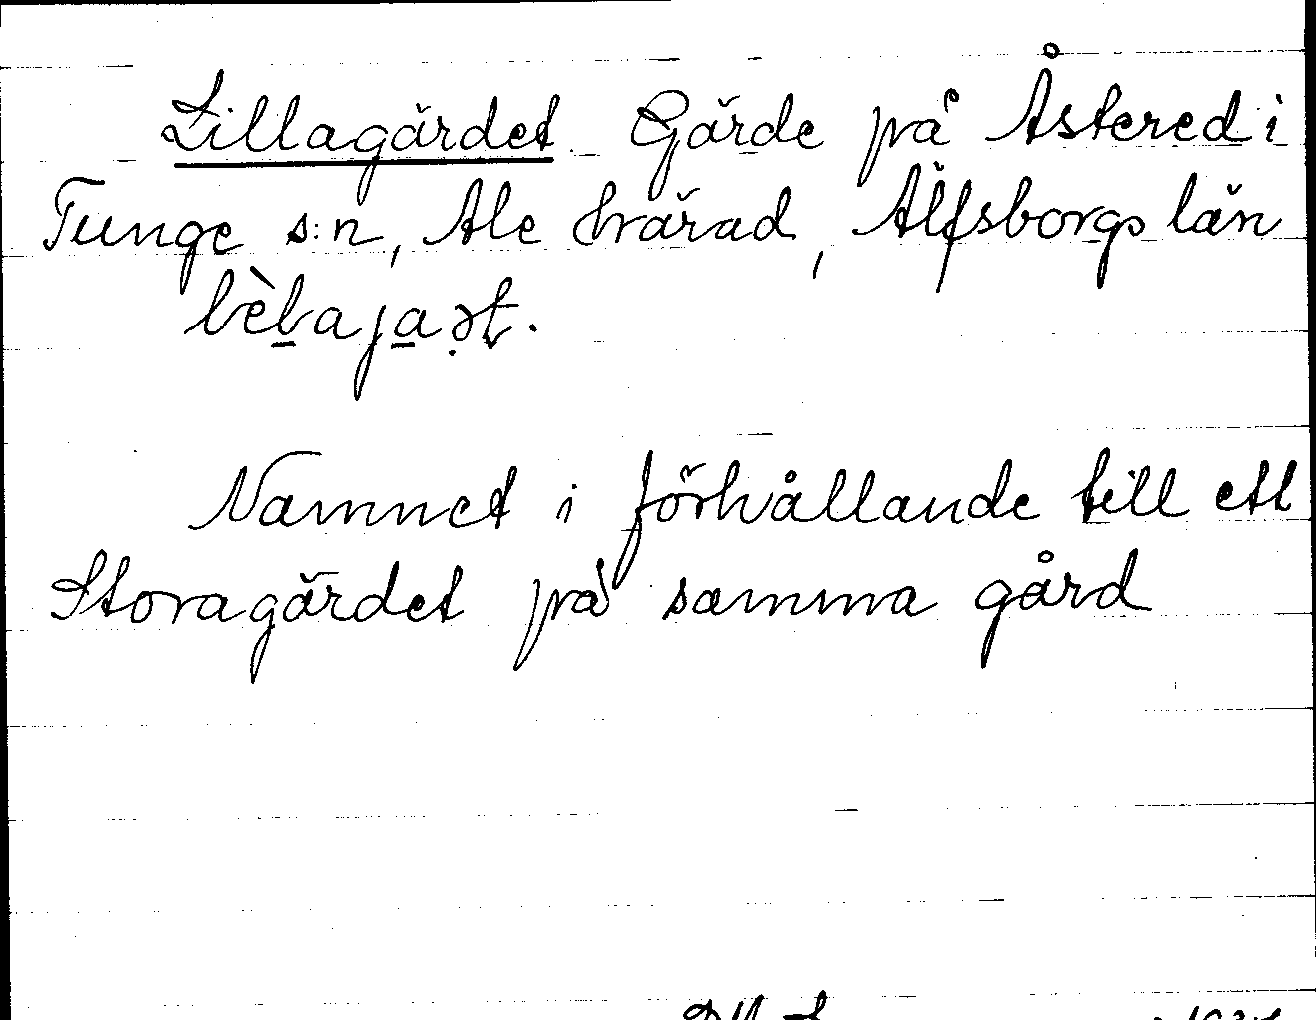 Lillagärdet Gärde på Åstered i
Tunge s:n, Ale härad, Älfsborgs län
Namnet i förhållande till ett
Storagärdet på samma gård